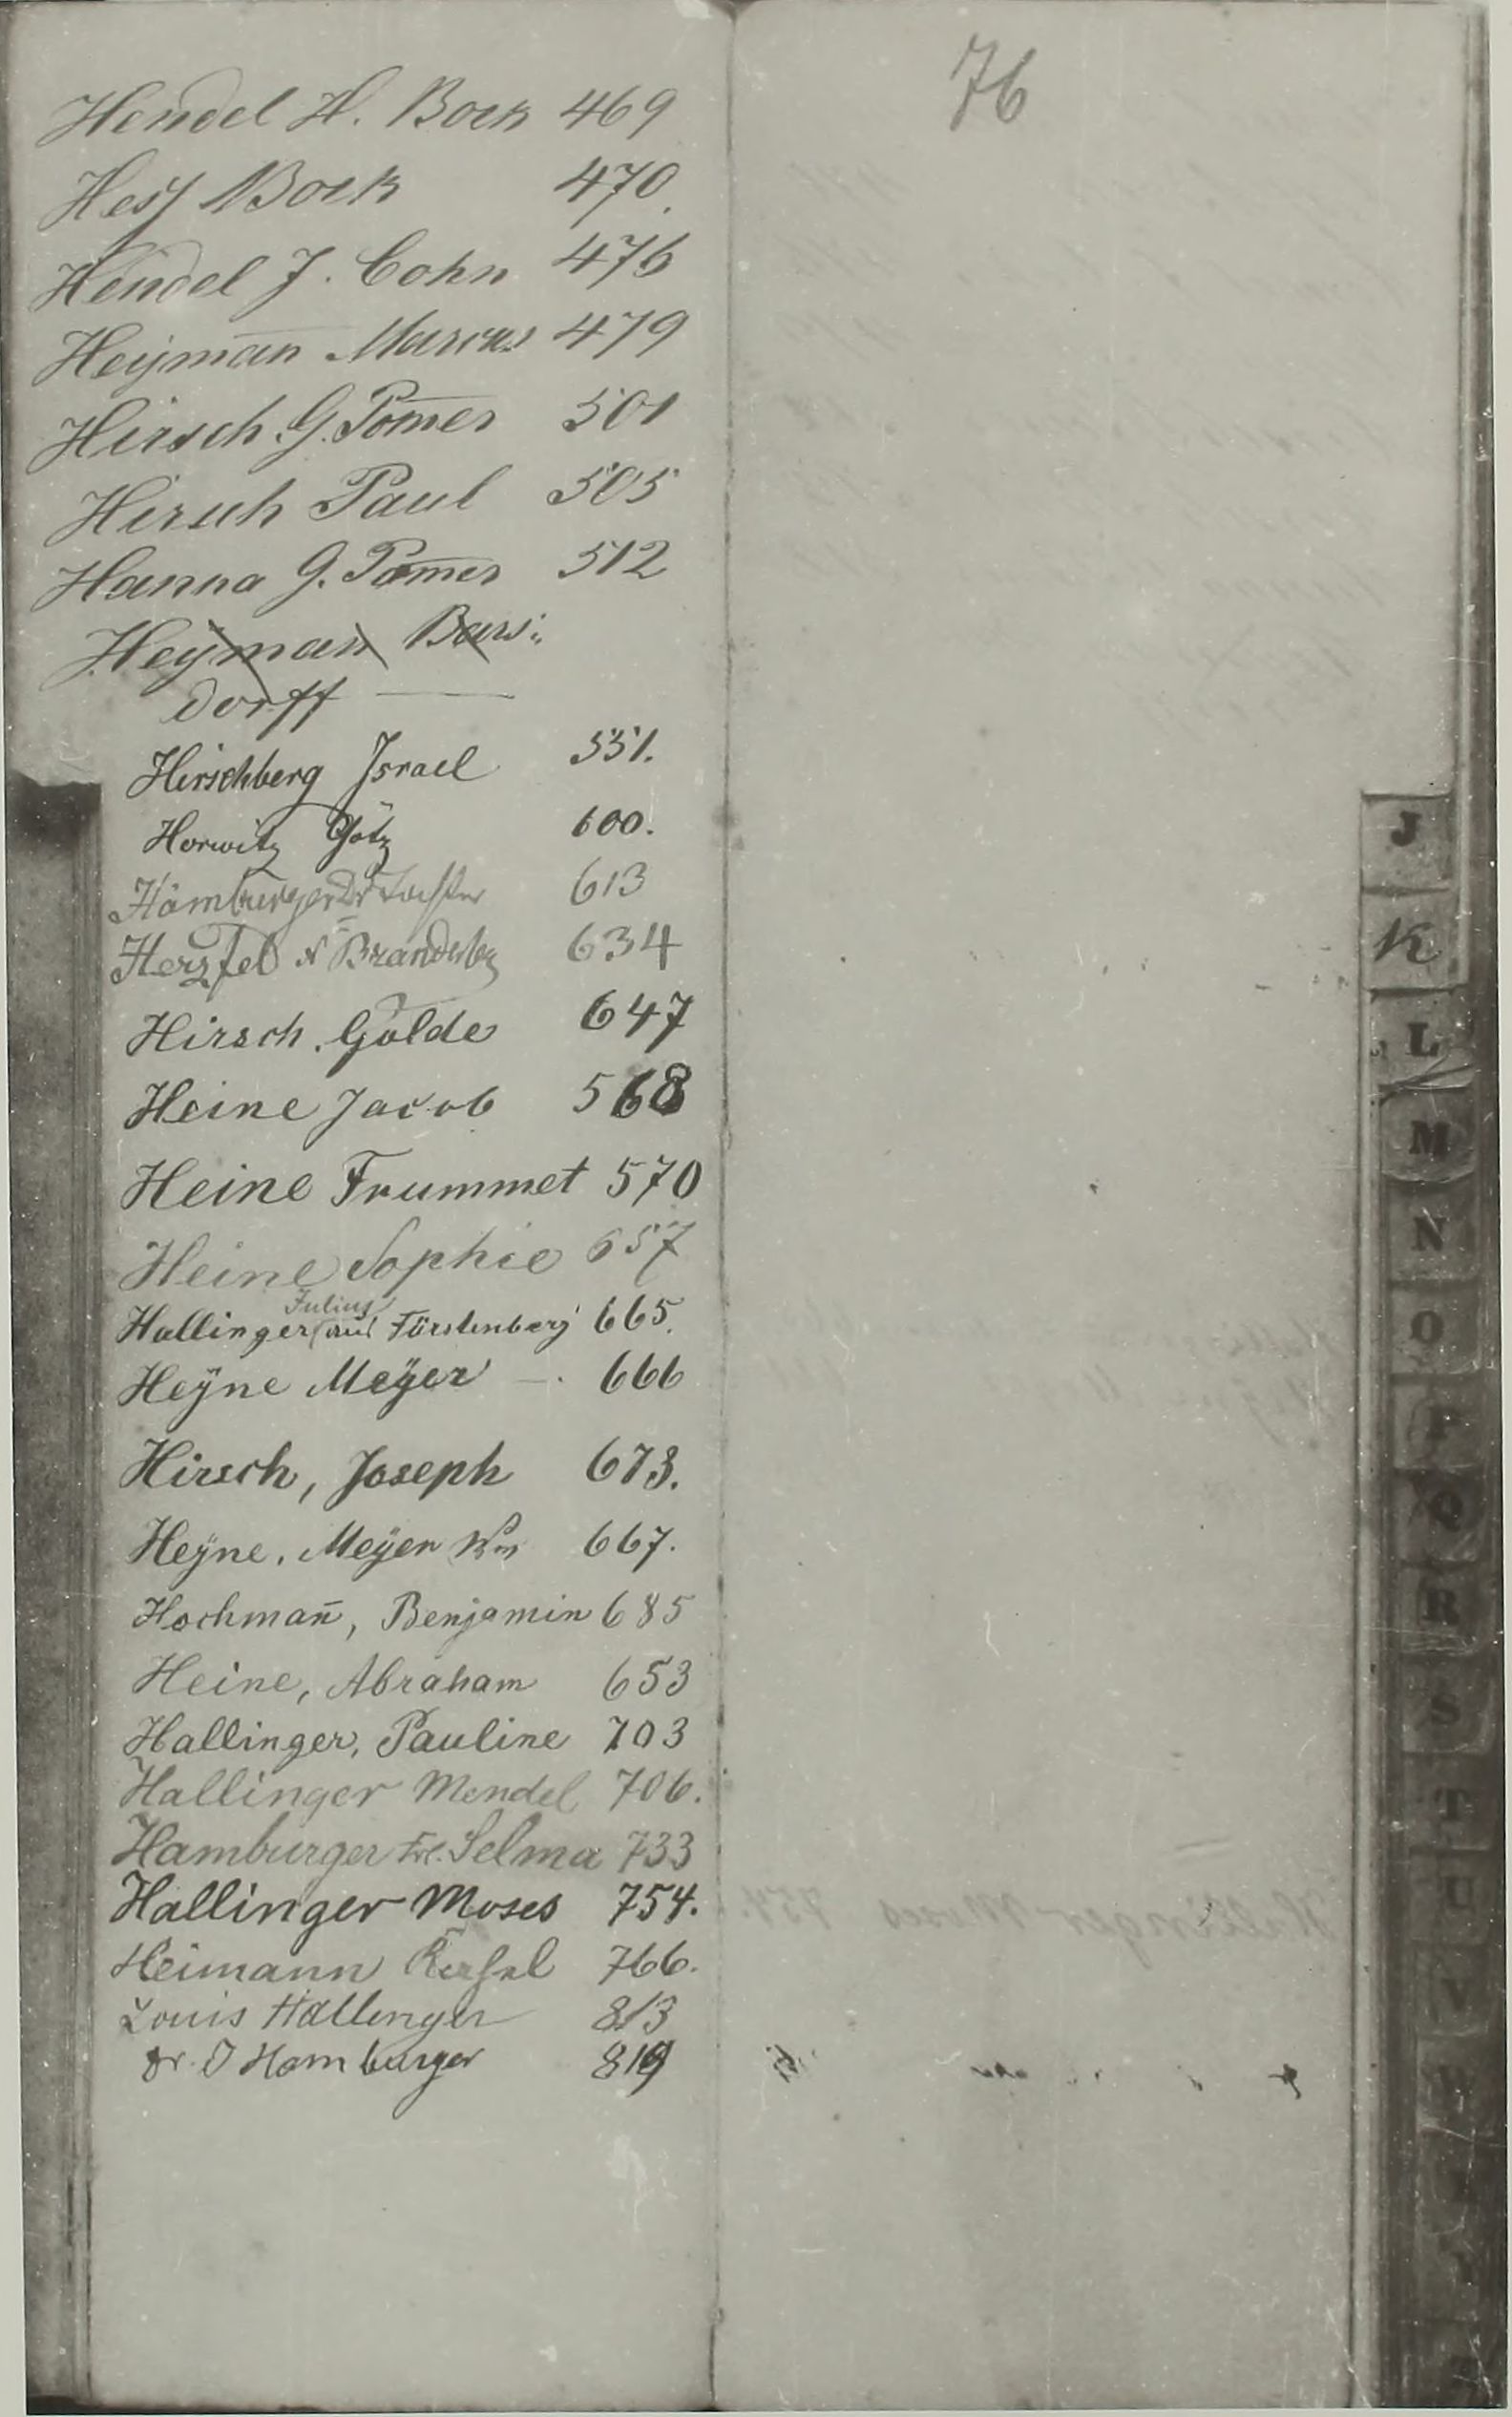 76
Hendel H. Bock 469
Hess Bock 470.
Hendel J. Cohn 476
Heijman Marcus 479
Hirsch G. Pom̄er 501
Hirsch Paul 505
Hanna G. Pom̄er 512
Heyman Bars:
dorff —
Hirschberg Israel 551.
Horwitz Götz 600.
Hamburger Dr Tochter 613
Herzfeld 634
Hirsch. Golde 647
Heine Jacob 568
Heine Frummet 570
Heine Sophie 657
Julius
Hallinger (aus Fürstenberg 665.
Heÿne Meÿer — . 666
Hirsch, Joseph 673.
Heÿne, Meÿer 667.
Hochman̄, Benjamin 685
Heine, Abraham 653
Hallinger, Pauline 703
Hallinger Mendel 706.
Hamburger Frl. Selma 733
Hallinger Moses 754.
Heimann 766.
Louis Hallinger 813
Dr. J Hamburger 819
J
K
L
M
N
O
P
Q
R
S
T
U
V